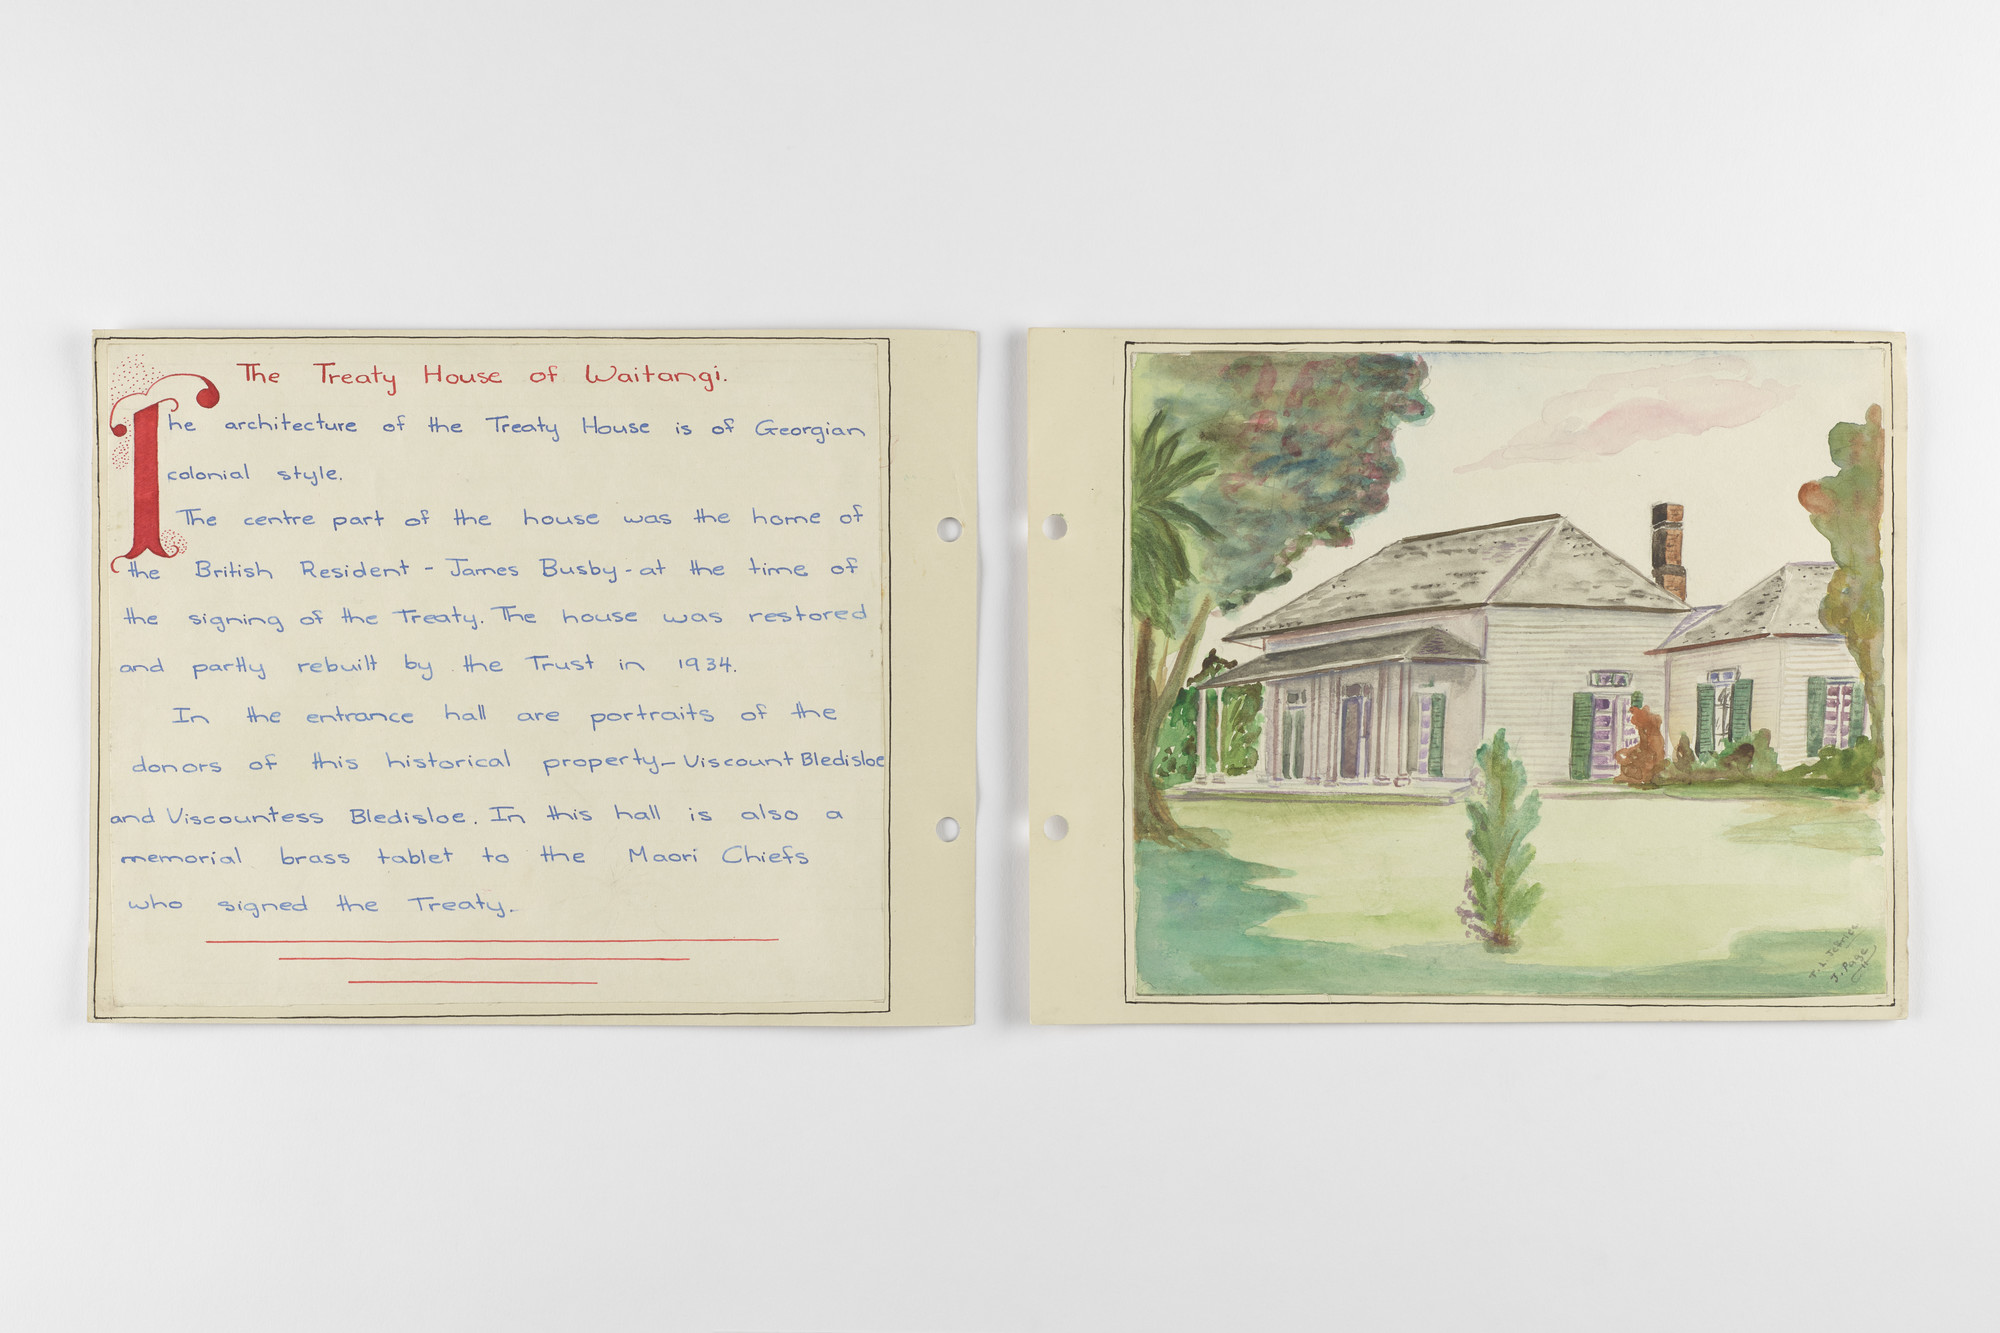 The Treaty House of Waitangi.
The architecture of the Treaty House is of Georgian
colonial style.
The centre part of the house was the home of
the British Resident - James Busby - at the time of
the signing of the Treaty. The house was restored
and partly rebuilt by the Trust in 1934.
In the entrance hall are portraits of the
donors of this historical property - Viscount Bledisloe
and Viscountess Bledisloe. In this hall is also a
memorial brass tablet to the Maori Chiefs
who signed the Treaty.
J. Page